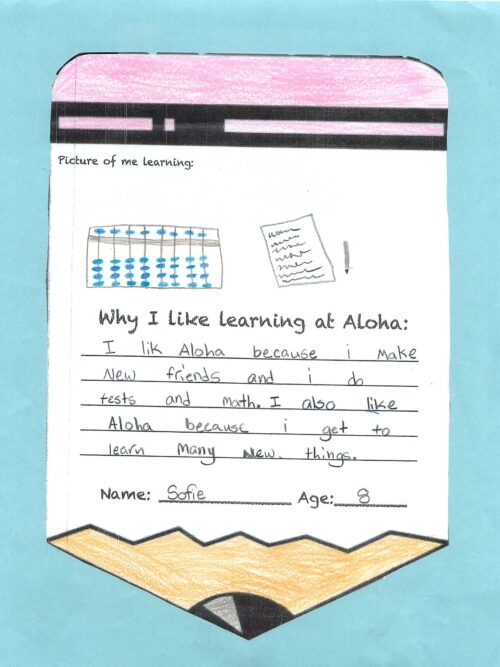 Picture of me learning:
Why I like learning at Aloha:
I lik Aloha because i make
New friends and i do
tests and math. I also like
Aloha because i get to
learn many new. things.
Name: Sofie Age: 8